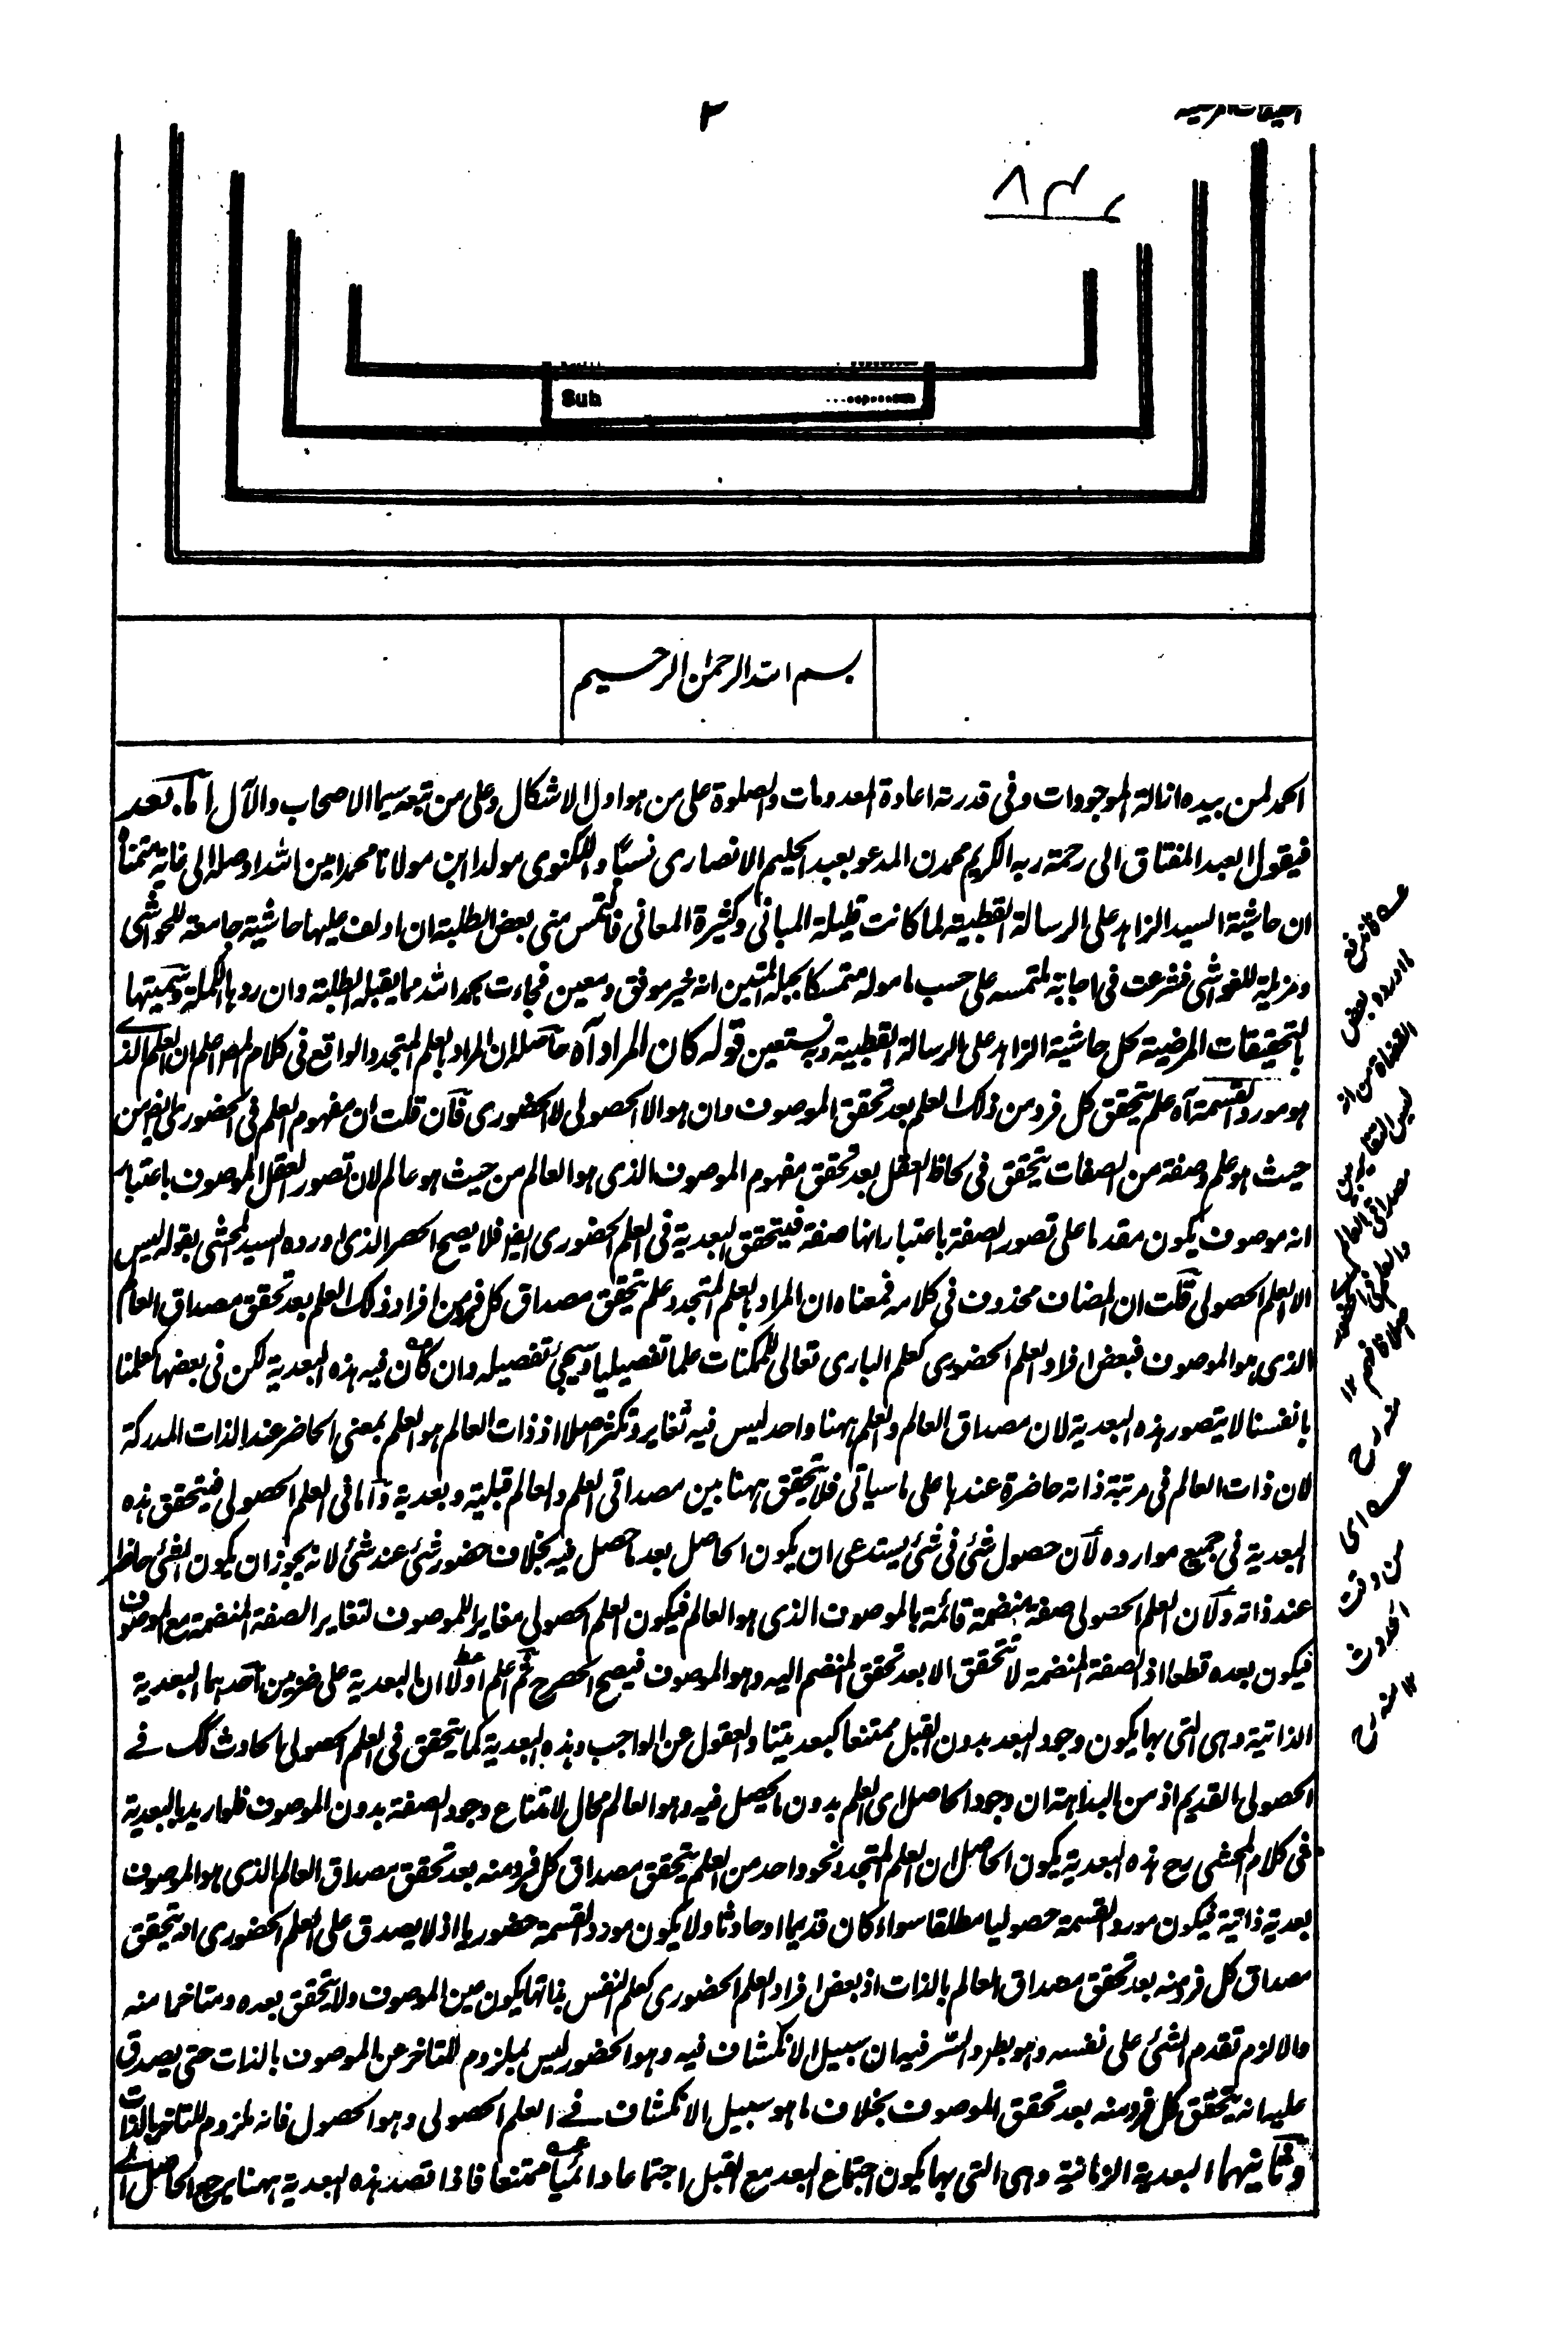 ٣
التحقيقات المرضية
٨٣٤
Sub
بسم الله الرحمن الرحيم
الحمد لمن بيده انالة الموجودات وفى قدرته اعادة المعدومات والصلوة على من هو اول الاشكال وعلى من تبعه سيما الاصحاب والآل اما بعد
فيقول العبد المفتاق الى رحمة ربه الكريم محمدن المدعو بعبد الحليم الانصارى نسبًا واللكنوى مولدا ابن مولانا محمد امين الله اوصله الى غاية متمناه
ان حاشية السيد الزاهد على الرسالة القطبية لما كانت قليلة المبانى وكثيرة المعانى فالتمس منى بعض الطلبة ان اولف عليها حاشية جامعة للحواشى
ومزيلة للغواشى فشرعت فى اجابة ملتمسه على حسب ماموله متمسكا بحبله المتين انه خير موفق ومعين فجاءت بحمد الله مما يقبله الطلبة وان ردها الكملة وسميتها
بالتحقيقات المرضية لحل حاشية الزاهد على الرسالة القطبية وبه نستعين قوله كان المراد آه حاصله ان المراد بالعلم المتجدد الواقع فى كلام المصـ اعلم ان العلم الذى
هو مورد القسمة آه علم يتحقق كل فرد من ذلك العلم بعد تحقق الموصوف وان هو الا الحصولى لا الحضورى فان قلت ان مفهوم العلم فى الحضورى ايضا من
حيث هو علم وصفة من الصفات يتحقق فى لحاظ العقل بعد تحقق مفهوم الموصوف الذى هو العالم من حيث هو عالم لان تصور العقل الموصوف باعتبار
انه موصوف يكون مقدما على تصور الصفة باعتبار انها صفة فيتحقق البعدية فى العلم الحضورى ايضا فلا يصح الحصر الذى اورده السيد المحشى بقوله ليس
الا العلم الحصولى قلت ان المضاف محذوف فى كلامه فمعناه ان المراد بالعلم المتجدد علم يتحقق مصداق كل فرد من افراد ذلك العلم بعد تحقق مصداق العالم
الذى هو الموصوف فبعض افراد العلم الحضورى كعلم البارى تعالى للممكنات علما تفصيليا وسيجئ تفصيله وان كان فيه هذه البعدية لكن فى بعضها كعلمنا
بانفسنا لا يتصور هذه البعدية لان مصداق العالم والعلم ههنا واحد ليس فيه تغاير وتكثر اصلا اذ ذات العالم هو العلم بمعنى الحاضر عند الذات المدركة
لان ذات العالم فى مرتبة ذاته حاضرة عندها على ما سياتى فلا يتحقق ههنا بين مصداقى العلم والعالم قبلية وبعدية واما فى العلم الحصولى فيتحقق هذه
البعدية فى جميع موارده لان حصول شئ فى شئ يستدعى ان يكون الحاصل بعد ما حصل فيه بخلاف حضور شئ عند شئ لانه يجوز ان يكون الشئ حاضرا
عند ذاته ولان العلم الحصولى صفة منضمة قائمة بالموصوف الذى هو العالم فيكون العلم الحصولى مغايرا للموصوف لتغاير الصفة المنضمة مع الموصوف
فيكون بعده قطعا اذ الصفة المنضمة لا تتحقق الا بعد تحقق المنضم اليه وهو الموصوف فيصح الحصر ح ثم اعلم اولا ان البعدية على ضربين احدهما البعدية
الذاتية وهى التى بها يكون وجود البعد بدون القبل ممتنعا كبعديتنا والعقول عن الواجب وهذه البعدية كما يتحقق فى العلم الحصولى الحادث كك فے
الحصولى القديم اذ من البداهة ان وجود الحاصل اى العلم بدون ما يحصل فيه وهو العالم محال لامتناع وجود الصفة بدون الموصوف فلما اريد بالبعدية
فى كلام المحشى رح هذه البعدية يكون الحاصل ان العلم المتجدد نحو واحد من العلم يتحقق مصداق كل فرد منه بعد تحقق مصداق العالم الذى هو الموصوف
بعدية ذاتية فيكون مورد القسمة حصوليا مطلقا سواء كان قديما او حادثا ولا يكون مورد القسمة حضوريا اذ لا يصدق على العلم الحضورى انه يتحقق
مصداق كل فرد منه بعد تحقق مصداق العالم بالذات اذ بعض افراد العلم الحضورى كعلم النفس بذاتها يكون عين الموصوف ولا يتحقق بعده ومتاخرا منه
والا لزم تقدم الشئ على نفسه وهو بط والسر فيه ان سبيل الانكشاف فيه وهو الحضور ليس بملزوم للتاخر عن الموصوف بالذات حتى يصدق
عليه انه يتحقق كل فرد منه بعد تحقق الموصوف بخلاف ما هو سبيل الانكشاف فے العلم الحصولى وهو الحصول فانه ملزوم للتاخر بالذات
وثانيهما البعدية الزمانية وهى التى بها يكون اجتماع البعد مع القبل اجتماعا دائميا ممتنعا فاذا تصد هذه البعدية ههنا يرجع الحاصل الى
عــه فاندفع
ما اورده بعض
القضاة من انه
ليس التقابل بين
مصداقى العالم
والعلم
اصلا فافهم ١٢
منه رح
عــه اى
من وقت
الحدوث
١٢ منه رح